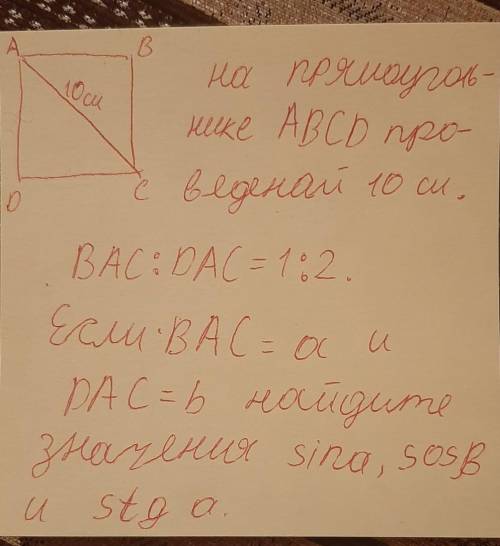 A B
10см
D C
на прямоуголь-
нике ABCD про-
веденай 10 см.
BAC:DAC=1:2.
Если BAC = a и
DAC=b найдите
значения sina, sosβ
и stg a.